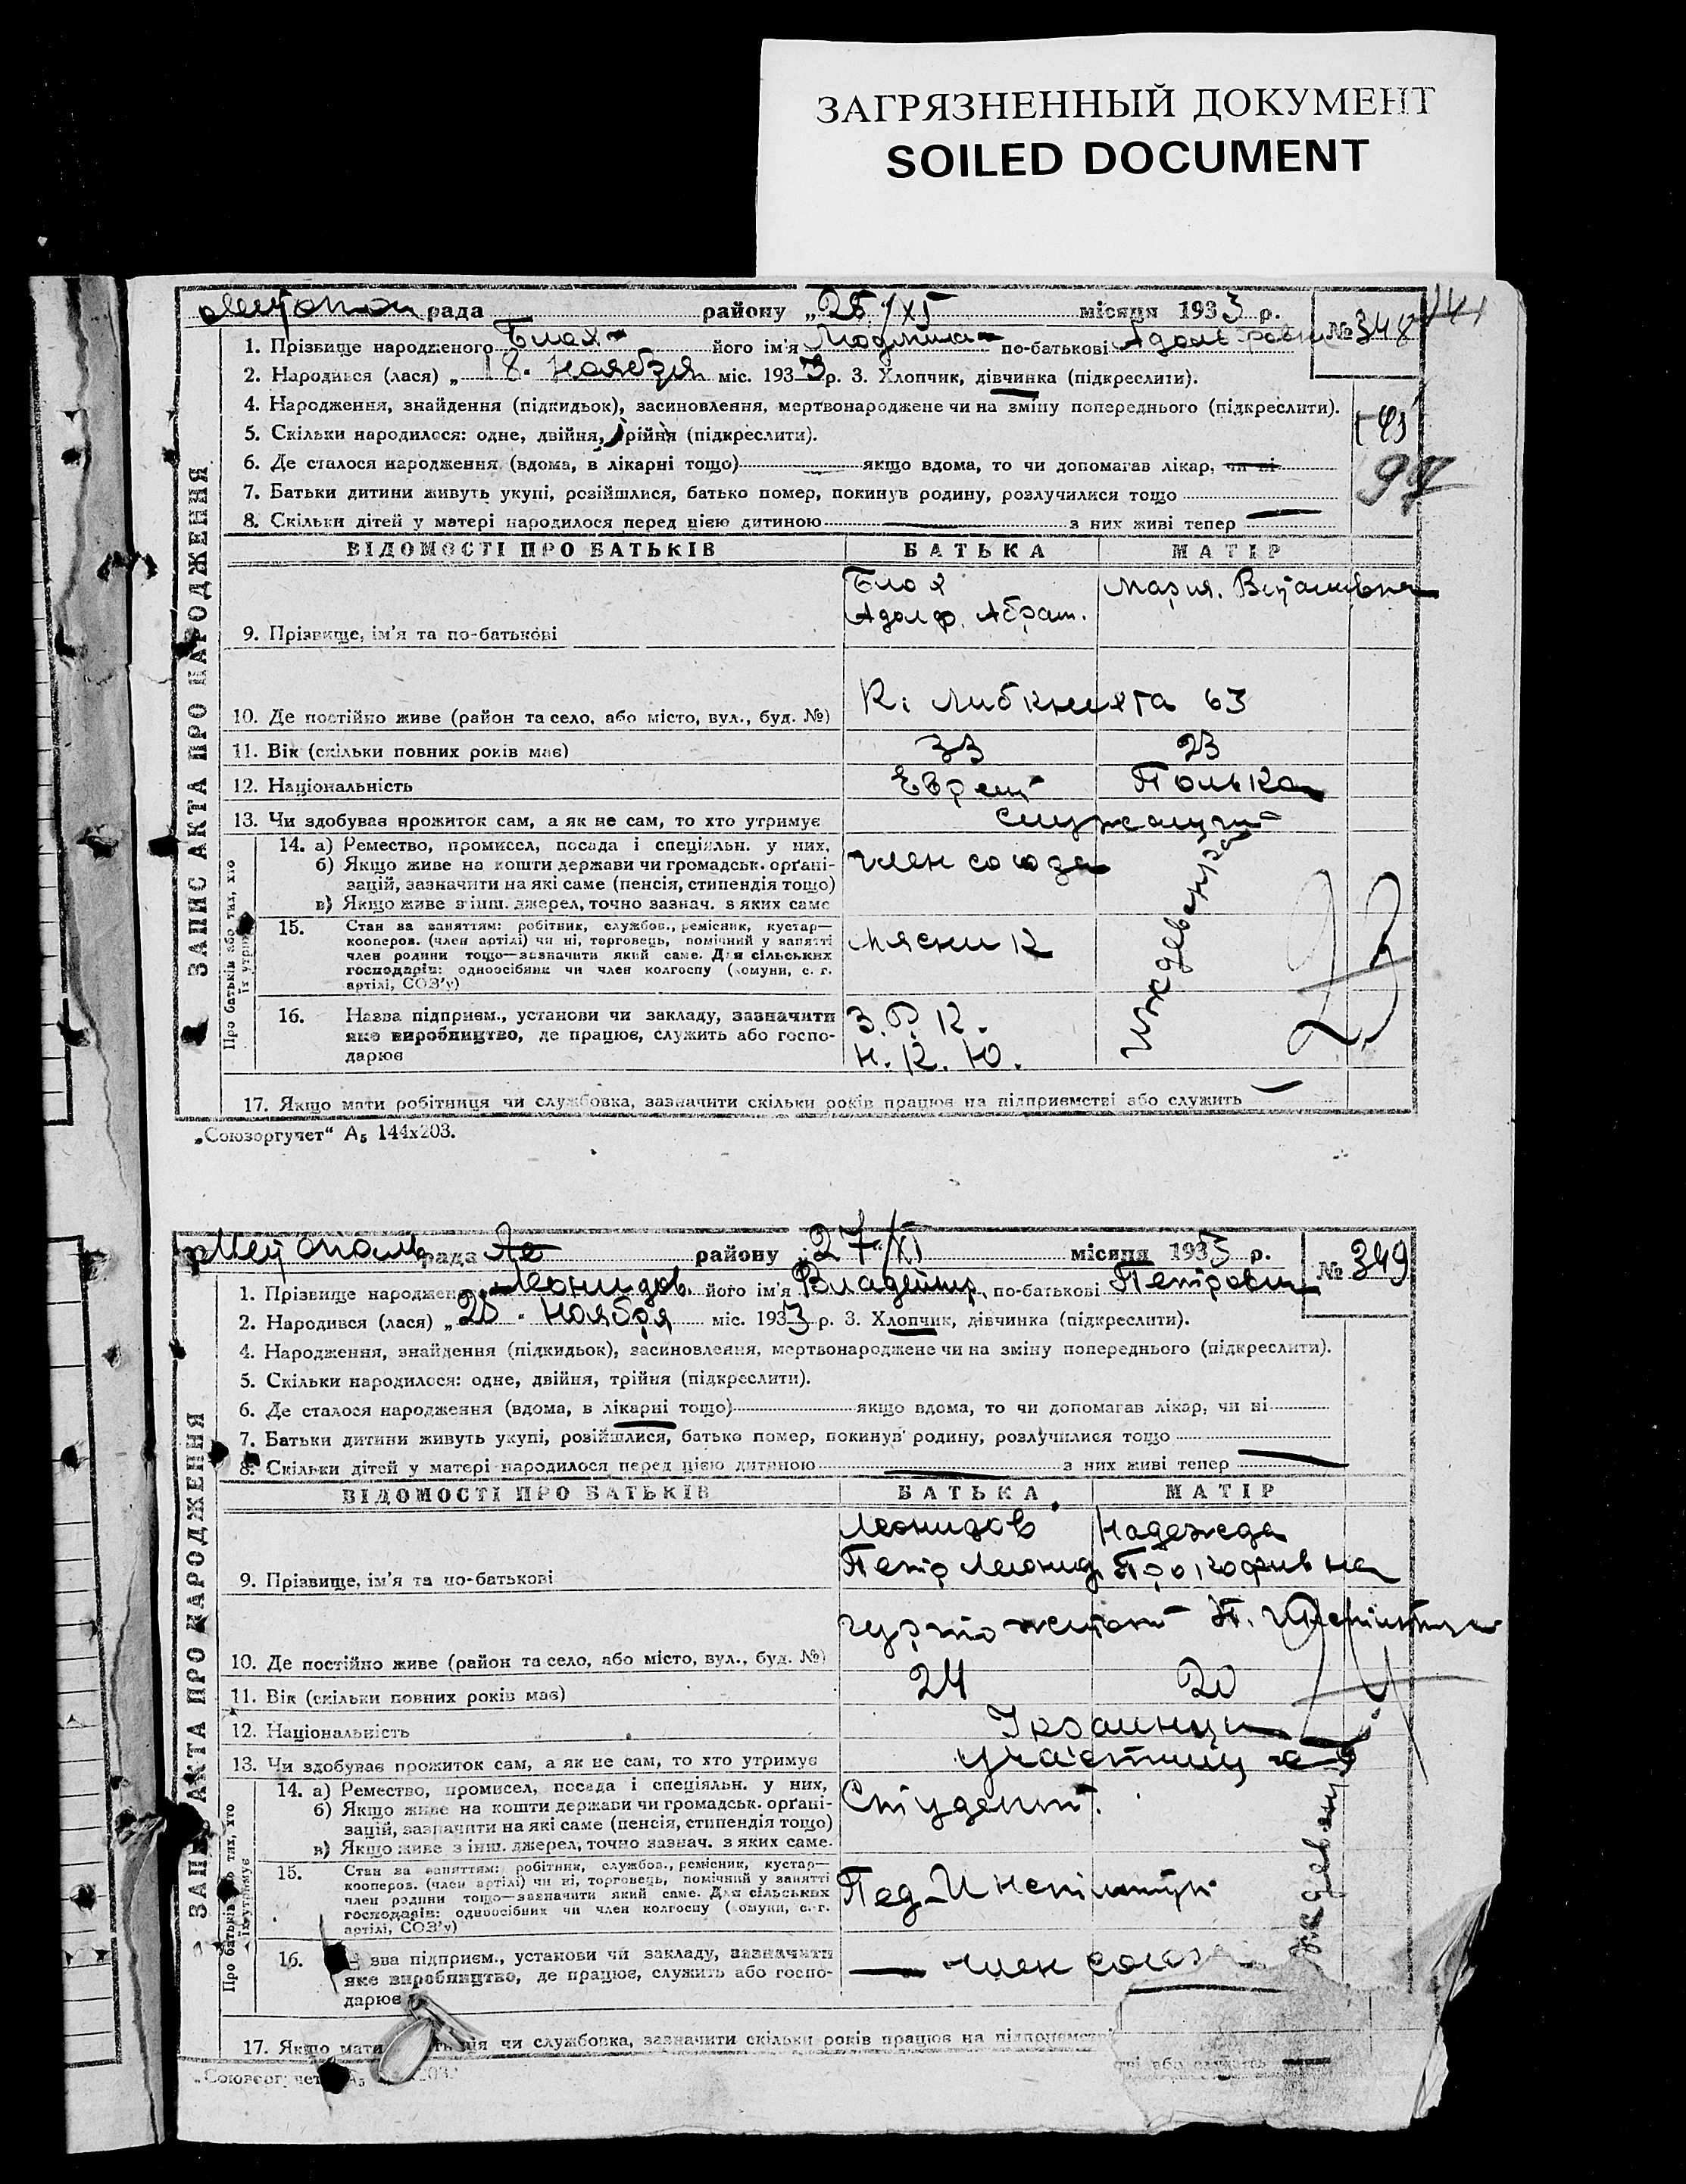 ЗАГРЯЗНЕННЫЙ ДОКУМЕНТ
SOILED DOCUMENT
рада района „25/XI місяця 1933 р. № 348
1. Прізвище народженого Блох його ім'я Людмила по-батькові
2. Народився (лася) „18. Ноября міс. 1933 р. 3. Хлопчик, дівчинка (підкреслити).
4. Народження, знайдення (підкидьок), засиновлення, мертвонароджене чи на зміну попереднього (підкреслити).
5. Скільки народилося: одне, двійня, трійня (підкреслити).
6. Де сталося народження (вдома, в лікарні тощо) якщо вдома, то чи допомагав лікар, чи ні
7. Батьки дитини живуть укупі, розійшлися, батько помер, покинув родину, розлучилися тощо
97
8. Скільки дітей у матері народилося перед цією дитиною з них живі тепер
ЗАПИС АКТА ПРО НАРОДЖЕННЯ
ВІДОМОСТІ ПРО БАТЬКІВ БАТЬКА МАТІР
Блох Мария.
Адолф. Абрам.
9. Прізвище, ім'я та по-батькові
10. Де постійно живе (район та село, або місто, вул., буд. №) К. Либкнехта 63
11. Вік (скільки повних років має) 33 23
12. Національність Еврей Полька
13. Чи здобував прожиток сам, а як не сам, то хто утримує Служащий
Про батьків або тих, хто їх утримує
14. а) Ремество, промисел, посада і спеціяльн. у них,
б) Якщо живе на кошти держави чи громадськ. орґані- член союза
зацій, зазначити на які саме (пенсія, стипендія тощо)
в) Якщо живе з інш. джерел, точно зазнач. з яких саме
15. Стан за заняттям: робітник, службов., ремісник, кустар—
кооперов. (член артілі) чи ні, торговець, помічний у занятті
член родини тощо—зазначити який саме. Для сільських
господарів: одноосібник чи член колгоспу (комуни, с. г.
артілі, СОЗ'у)
16. Назва підприєм., установи чи закладу, зазначити З. Р. К.
яке виробництво, де працює, служить або госпо-
дарює Н. К. Ю.
17. Якщо мати робітниця чи службовка, зазначити скільки років працює на підприємстві або служить
„Союзоргучет“ А₅ 144х203.
рада району „27/XI місяця 1933 р. № 349
1. Прізвище народжен Леонидов його ім'я Владимир по-батькові Петрович
2. Народився (лася) „25. Ноября міс. 1933 р. 3. Хлопчик, дівчинка (підкреслити).
4. Народження, знайдення (підкидьок), засиновлення, мертвонароджене чи на зміну попереднього (підкреслити).
5. Скільки народилося: одне, двійня, трійня (підкреслити).
6. Де сталося народження (вдома, в лікарні тощо) якщо вдома, то чи допомагав лікар, чи ні
7. Батьки дитини живуть укупі, розійшлися, батько помер, покинув родину, розлучилися тощо
8. Скільки дітей у матері народилося перед цією дитиною з них живі тепер
ЗАПИС АКТА ПРО НАРОДЖЕННЯ
ВІДОМОСТІ ПРО БАТЬКІВ БАТЬКА МАТІР
Леонидов Надежда
Петр Леонид.
9. Прізвище, ім'я та по-батькові
10. Де постійно живе (район та село, або місто, вул., буд. №)
11. Вік (скільки повних років має) 24 20
12. Національність
13. Чи здобував прожиток сам, а як не сам, то хто утримує
Про батьків або тих, хто їх утримує
14. а) Ремество, промисел, посада і спеціяльн. у них, Студент.
б) Якщо живе на кошти держави чи громадськ. орґані-
зацій, зазначити на які саме (пенсія, стипендія тощо)
в) Якщо живе з інш. джерел, точно зазнач. з яких саме.
15. Стан за заняттям: робітник, службов., ремісник, кустар—
кооперов. (член артілі) чи ні, торговець, помічний у занятті
член родини тощо—зазначити який саме. Для сільських Пед-Институт
господарів: одноосібник чи член колгоспу (комуни, с. г.
артілі, СОЗ'у)
16. зва підприєм., установи чи закладу, зазначити член союза
яке виробництво, де працює, служить або госпо-
дарює
17. Якщо мати чи службовка, зазначити скільки років працює на підприємстві або служить